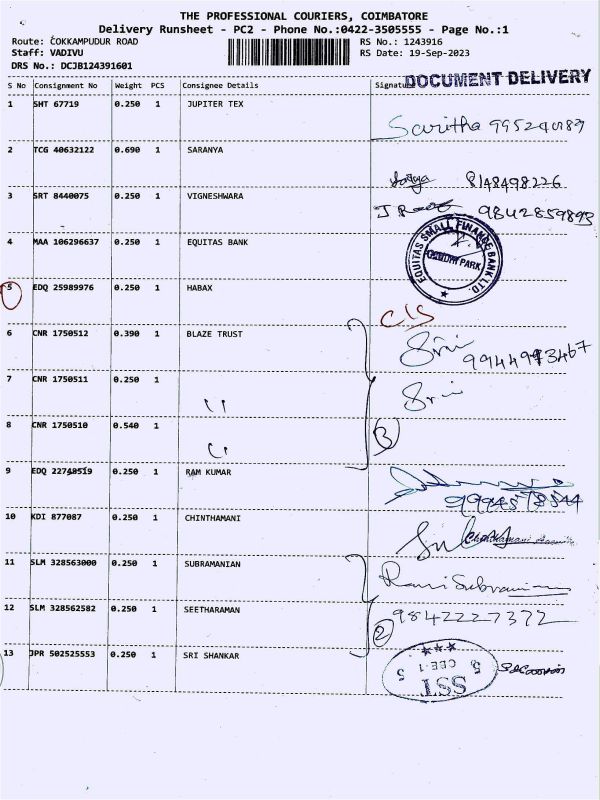 THE PROFESSIONAL COURIERS, COIMBATORE
Delivery Runsheet - PC2 - Phone No.:0422-3505555 - Page No.:1
Route: COKKAMPUDUR ROAD RS No.: 1243916
Staff: VADIVU RS Date: 19-Sep-2023
DRS No.: DCJB124391601
DOCUMENT DELIVERY
S No Consignment No Weight PCS Consignee Details Signature
1 SHT 67719 0.250 1 JUPITER TEX
Saritha
2 TCG 40632122 0.690 1 SARANYA
8148498226
3 SRT 8440075 0.250 1 VIGNESHWARA
9842859893
4 MAA 106296637 0.250 1 EQUITAS BANK
EQUITAS SMALL FINANCE BANK LTD.
GANDHI PARK
5 EDQ 25989976 0.250 1 HABAX
C/S
6 CNR 1750512 0.390 1 BLAZE TRUST
Srii
7 CNR 1750511 0.250 1 "
Sri
8 CNR 1750510 0.540 1 "
3
9 EDQ 22748519 0.250 1 RAM KUMAR
10 KDI 877087 0.250 1 CHINTHAMANI
11 SLM 328563000 0.250 1 SUBRAMANIAN
12 SLM 328562582 0.250 1 SEETHARAMAN
9842227372
2
13 JPR 502525553 0.250 1 SRI SHANKAR
SST
CBE-1